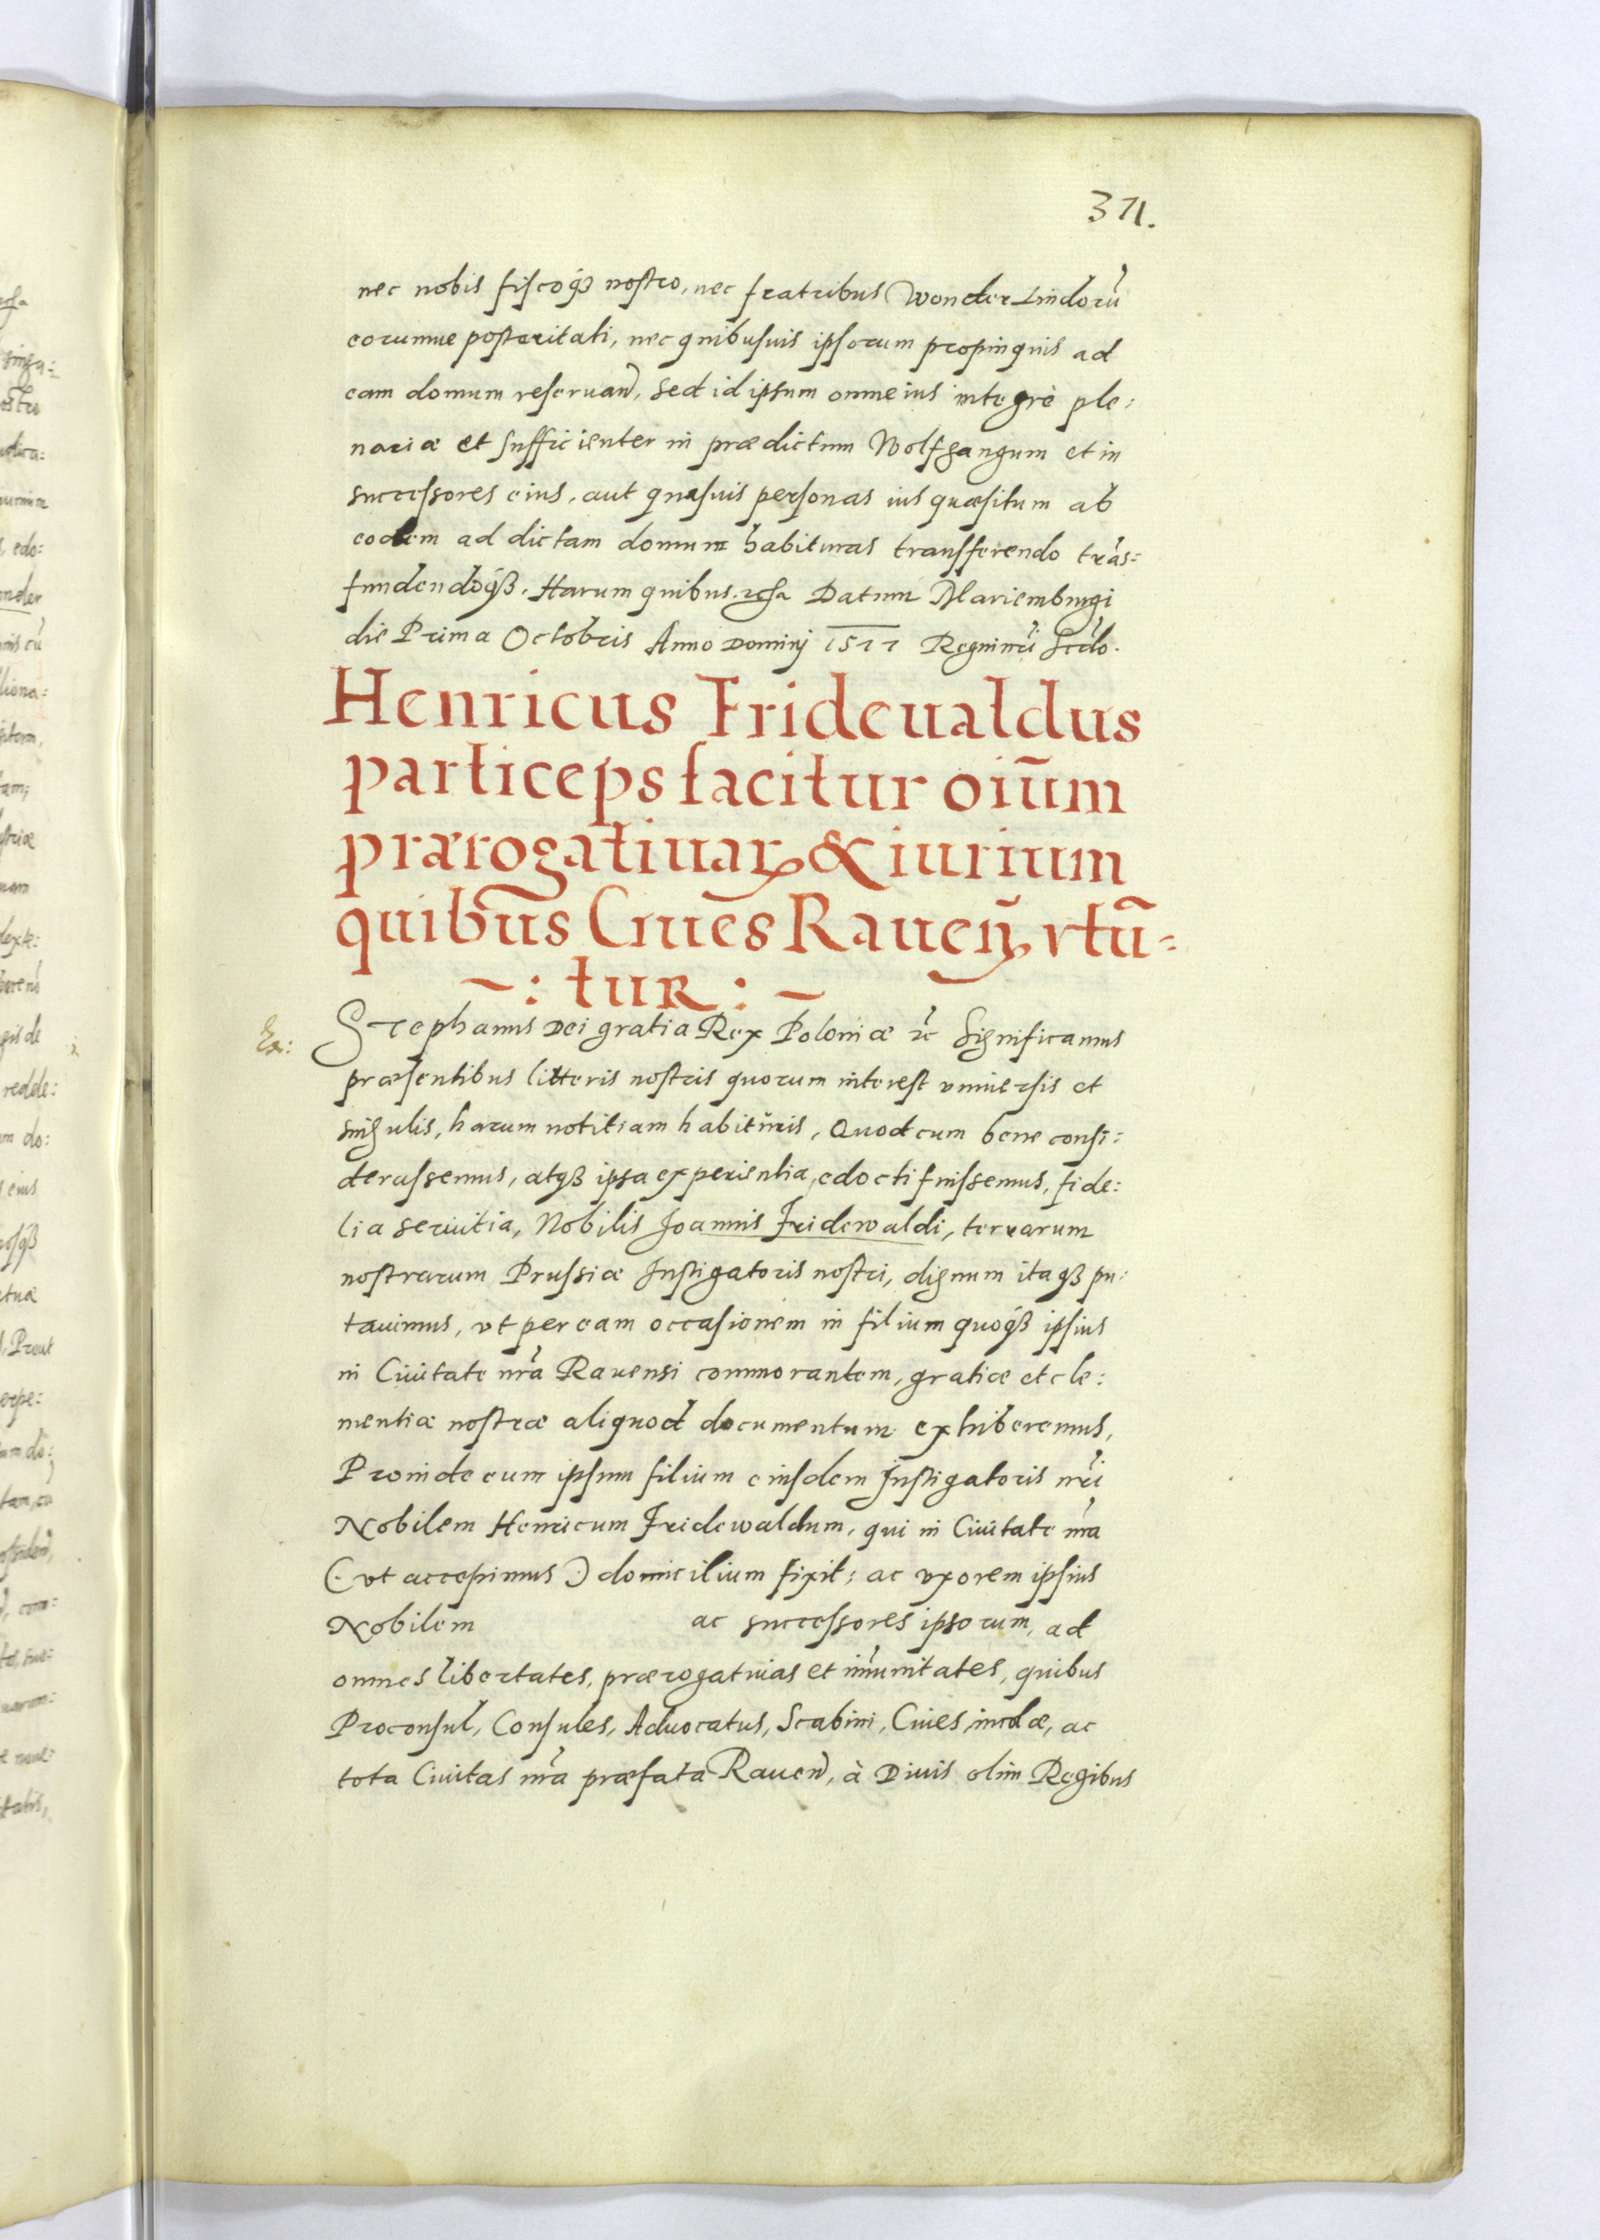 371.
nec nobis fiscoq́ꝫ nostro, nec fratribus Wonder Lindorū
eorumue posteritati, nec quibusuis ipsorum propinquis ad
eam domum reseruan̄, sed id ipsum omne ius integrè ple:
nariæ et sufficienter in prædictum Wolfgangum et in
successores eius, aut quasuis personas ius quæsitum ab
eodem ad dictam domum habituras transferendo trās:
fundendoq́ꝫ. Harum quibus. etꝭa Datum Mariemburgi
die Prima Octobris Anno Dominj 1577 Regni nr̄i Scdo.
Henricus Frideualdus
particeps facitur oiūm
prærogatiuaꝝ & iurium
quibus Ciues Raueñ vtū-
-: tur :-
Ex:
Stephanus Dei gratia Rex Poloniæ ꝛc̄ Significamus
præsentibus litteris nostris quorum interest vniuersis et
singulis, harum notitiam habituris, Quod cum bene consi:
derassemus, atqꝫ ipsa experientia, edocti fuissemus, fide:
lia seruitia, Nobilis Joannis Fridewaldi, terrarum
nostrarum Prussiæ Instigatoris nostri, dignum itaqꝫ pu:
tauimus, vt per eam occasionem in filium quoq́ꝫ ipsius
in Ciuitate nr̄a Rauensi commorantem, gratiæ et cle:
mentiæ nostræ aliquod documentum exhiberemus,
Proinde eum ipsum filium eiusdem Instigatoris nr̄i
Nobilem Henricum Fridewaldum, qui in Ciuitate nr̄a
(: vt accepimus :) domicilium fixit; ac vxorem ipsius
Nobilem ac successores ipsorum, ad
omnes libertates, prærogatiuas et im̄unitates, quibus
Proconsul, Consules, Aduocatus, Scabini, Ciues, incolæ, ac
tota Ciuitas nr̄a præfata Raueñ, à Diuis olim Regibus